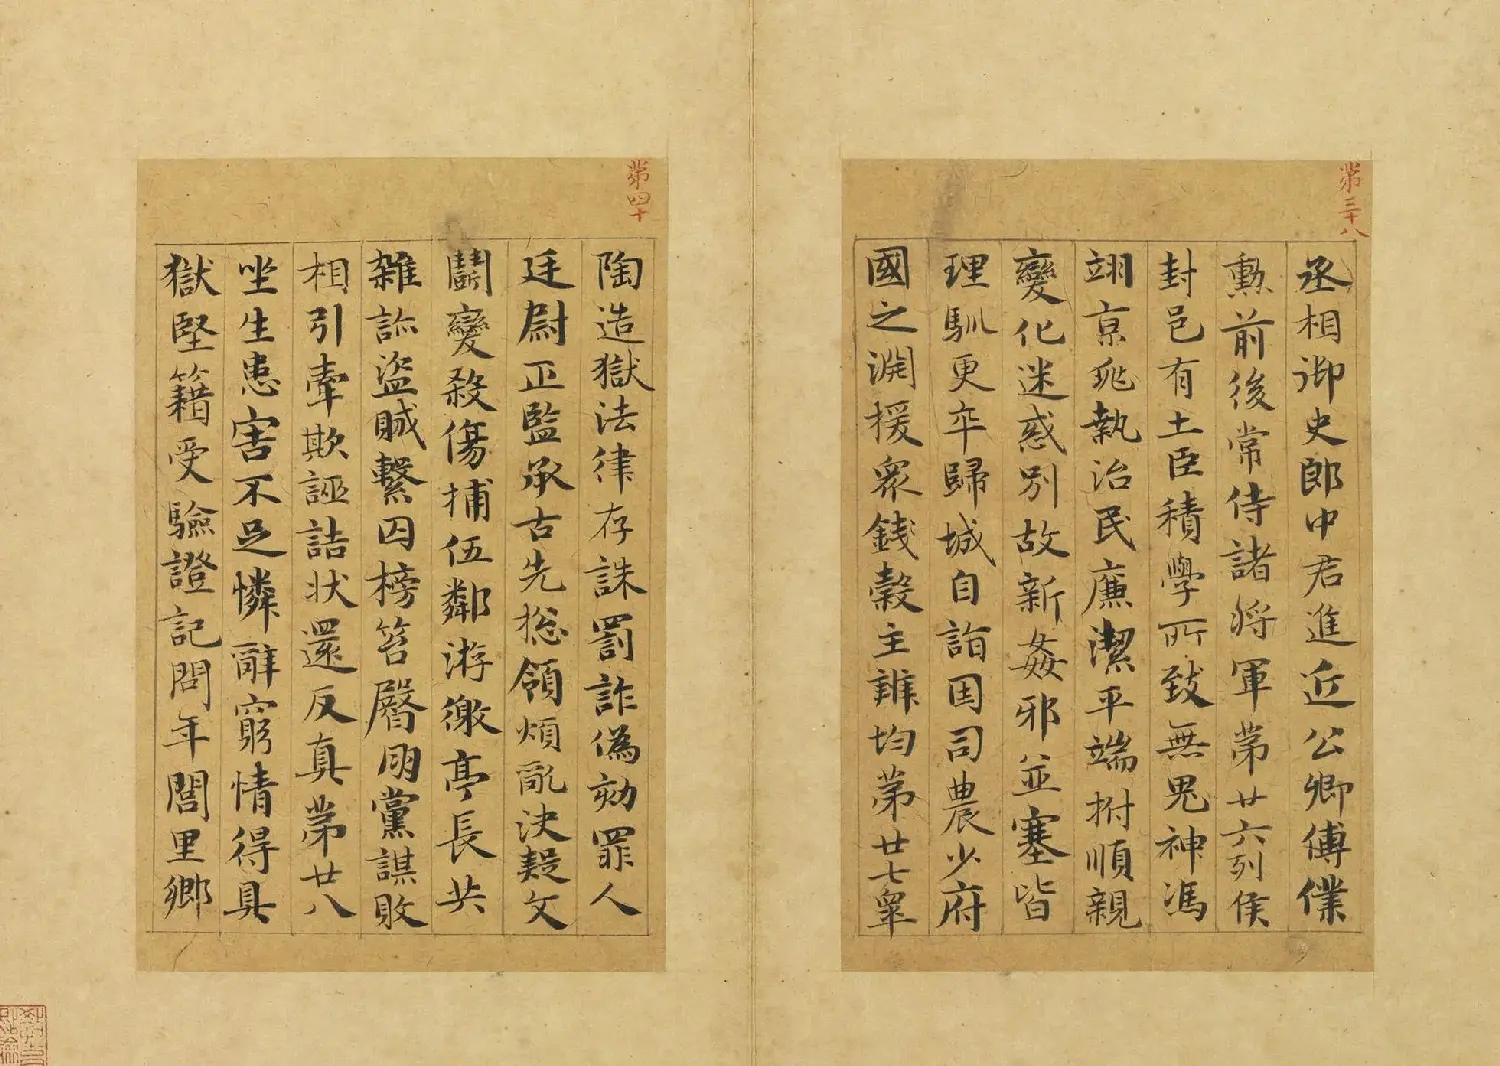 第三十八
丞相御史郎中君進近公卿傅僕
勲前後常侍諸將軍第廿六列侯
封邑有土臣積學所致無鬼神馮
翊京兆執治民廉潔平端拊順親
變化迷惑別故新姦邪並塞皆
理馴更卒歸城自詣因司農少府
國之淵援衆錢穀主辨均第廿七辠
第四十
陶造獄法律存誅罰詐偽劾罪人
廷尉正監承古先総領煩亂決疑文
鬬變殺傷捕伍鄰游徼亭長共
雜訟盜賊繫囚榜笞臀朋黨謀敗
相引牽欺誣詰状還反真第廿八
坐生患害不足憐辭窮情得具
獄堅籍受驗證記問年閭里鄉